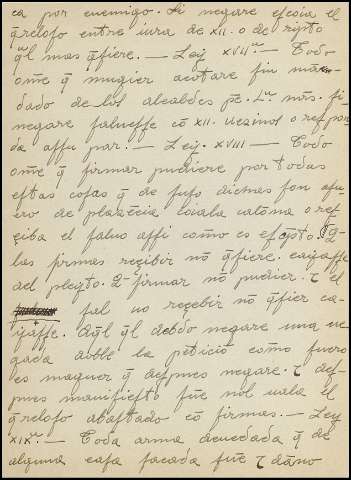 ca por enemigo. Si negare escoia el
q̄reloso entre iura de XII. o de riepto
q̄l mas q̄siere. — Ley XVIIᵃ. — Todo
ome q̄ mugier açotare sin man-
dado de los alcaldes pe. Lᵃ mrs. si
negare salvesse cō XII. vezinos o
da assu par. — Ley. XVIII — Todo
ome q̄ firmar pudiere por todas
estas cosas q̄ de suso dichas son afu-
ero de plazēcia coiala calōna o res-
çiba el salvo assi como es escipto. Si q̄
las firmas reçibir nō q̄siere. cayasse
del pleyto. E firmar nō pudier. τ el
sal no reçebir nō q̄sier ca-
yasse. Aql̄ q̄l debdo negare una ve-
gada doble la petiçiō como fuero
es maguer q̄ despues negare. τ des-
pues manifiesto fue nol vala el
q̄reloso abastado cō firmas. — Ley
XIXᵃ. — Toda arma devedada q̄ de
alguna casa sacada fue τ daño